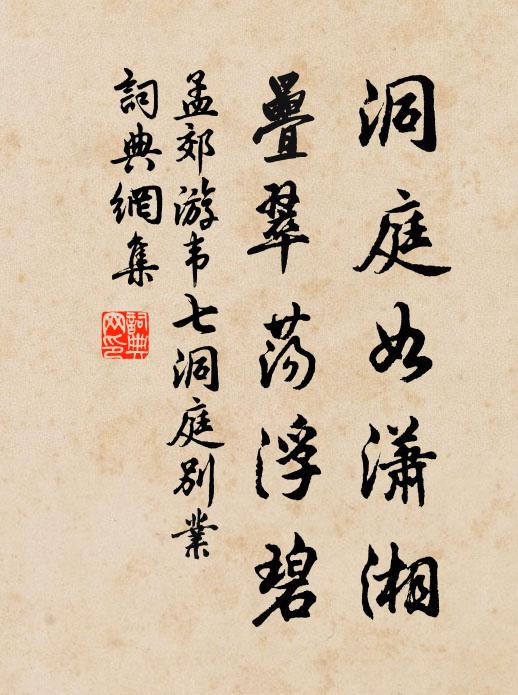 洞庭如潇湘
疊翠荡浮碧
孟郊游韦七洞庭别業
詞典網集
詞典網印